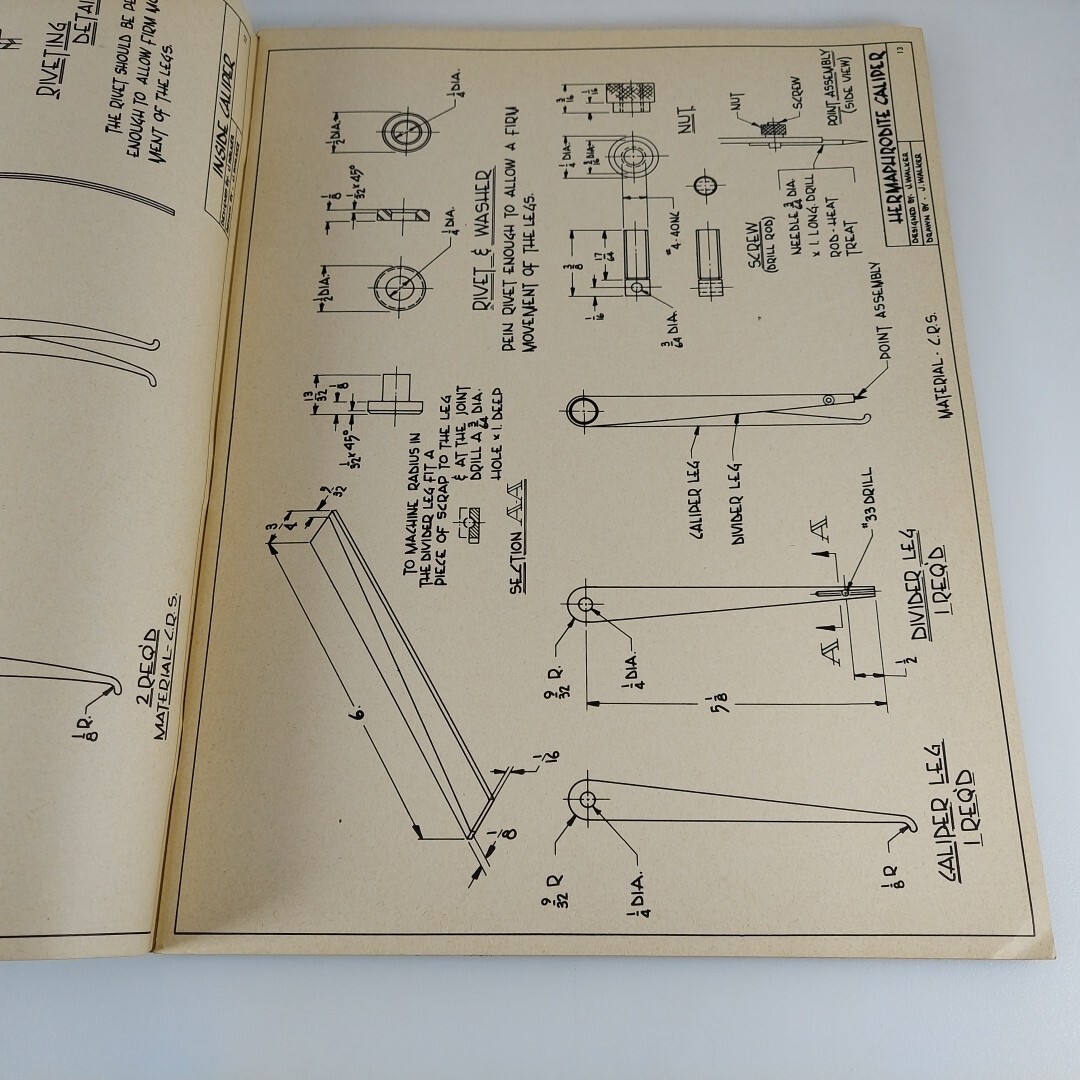 RIVETING
DETAI
THE RIVET SHOULD BE PE
ENOUGH TO ALLOW FIRM MO
MENT OF THE LEGS.
INSIDE CALIPER
1/8 R.
2 REQ'D
MATERIAL- C.R.S.
13
HERMAPHRODITE CALIPER
DESIGNED BY. J. WALKER
DRAWN BY. J. WALKER
1/2 DIA.
1/4 DIA.
1/8
1/32 x 45°
1/2 DIA.
1/4 DIA.
13/32
1/8
1/32 x 45°
RIVET & WASHER
PEIN RIVET ENOUGH TO ALLOW A FIRM
MOVEMENT OF THE LEGS.
3/16
1/16
1/4 DIA.
DIA.
NUT
#4-40NC
3/8
17/64
1/16
3/64 DIA.
SCREW
(DRILL ROD)
NUT
SCREW
POINT ASSEMBLY
(SIDE VIEW)
NEEDLE 3/64 DIA.
x 1 LONG. DRILL
ROD - HEAT
TREAT
3/4
9/32
6
1/16
1/8
TO MACHINE RADIUS IN
THE DIVIDER LEG FIT A
PIECE OF SCRAP TO THE LEG
& AT THE JOINT
DRILL A 3/64 DIA.
HOLE x 1 DEEP
SECTION A-A
POINT ASSEMBLY
CALIPER LEG
DIVIDER LEG
MATERIAL - C.R.S.
9/32 R.
1/4 DIA.
5 1/8
A
A
#33 DRILL
1/2
DIVIDER LEG
1 REQ'D
9/32 R
1/4 DIA.
1/8 R
CALIPER LEG
1 REQ'D